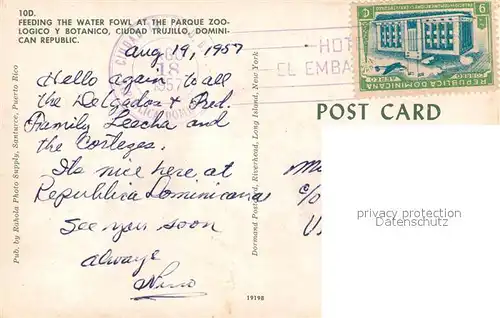 10D.
FEEDING THE WATER FOWL AT THE PARQUE ZOO-
LOGICO Y BOTANICO, CIUDAD TRUJILLO, DOMINI-
CAN REPUBLIC.
Aug 19, 1957
Hello again to all
the Delgados & Prof.
Family Leacha and
the Corteges.
Its nice here at
Republica Dominicana
See you soon
always
Nino
POST CARD
HOT
EL EMBA
1957
9
C
CORREO AEREO
REPUBLICA DOMINICANA
Pub. by Rahola Photo Supply, Santurce, Puerto Rico
Dormand Postcard, Riverhead, Long Island, New York
19198
c/o
privacy protection
Datenschutz